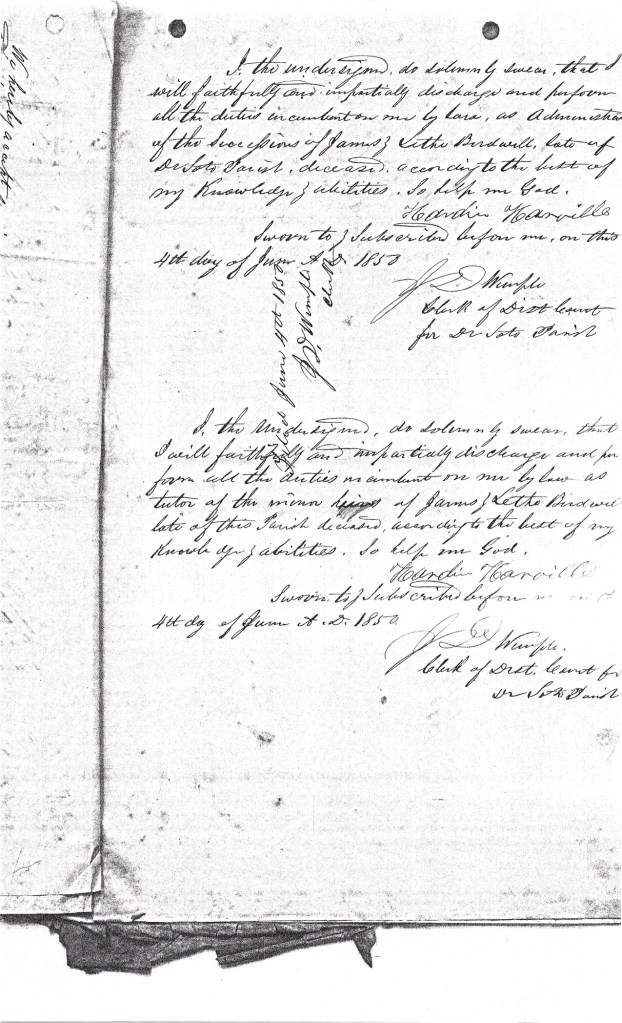 We hereby accept
I, the undersigned, do solemnly swear, that I
will faithfully and impartially discharge and perform
all the duties incumbent on me by law, as Administra
of the Successions of James & Letha Birdwell, late of
De Soto Parish, deceased, according to the best of
my Knowledge & abilities. So help me God.
Hardin Harville
Sworn to & Subscribed before me, on this
4th day of June A.D. 1850
J D Wemple
Clerk of Dist Court
for De Soto Parish
Filed June 4th 1850
J D Wemple
Clerk
I, the undersigned, do solemnly swear, that
I will faithfully and impartially discharge and per
form all the duties incumbent on me by law as
tutor of the minor heirs of James & Letha Birdwel
late of this Parish deceased, according to the best of my
Knowledge & abilities. So help me God.
Hardin Harville
Sworn to & Subscribed before
4th day of June A.D. 1850.
J D Wemple.
Clerk of Dist. Court for
De Soto Parish